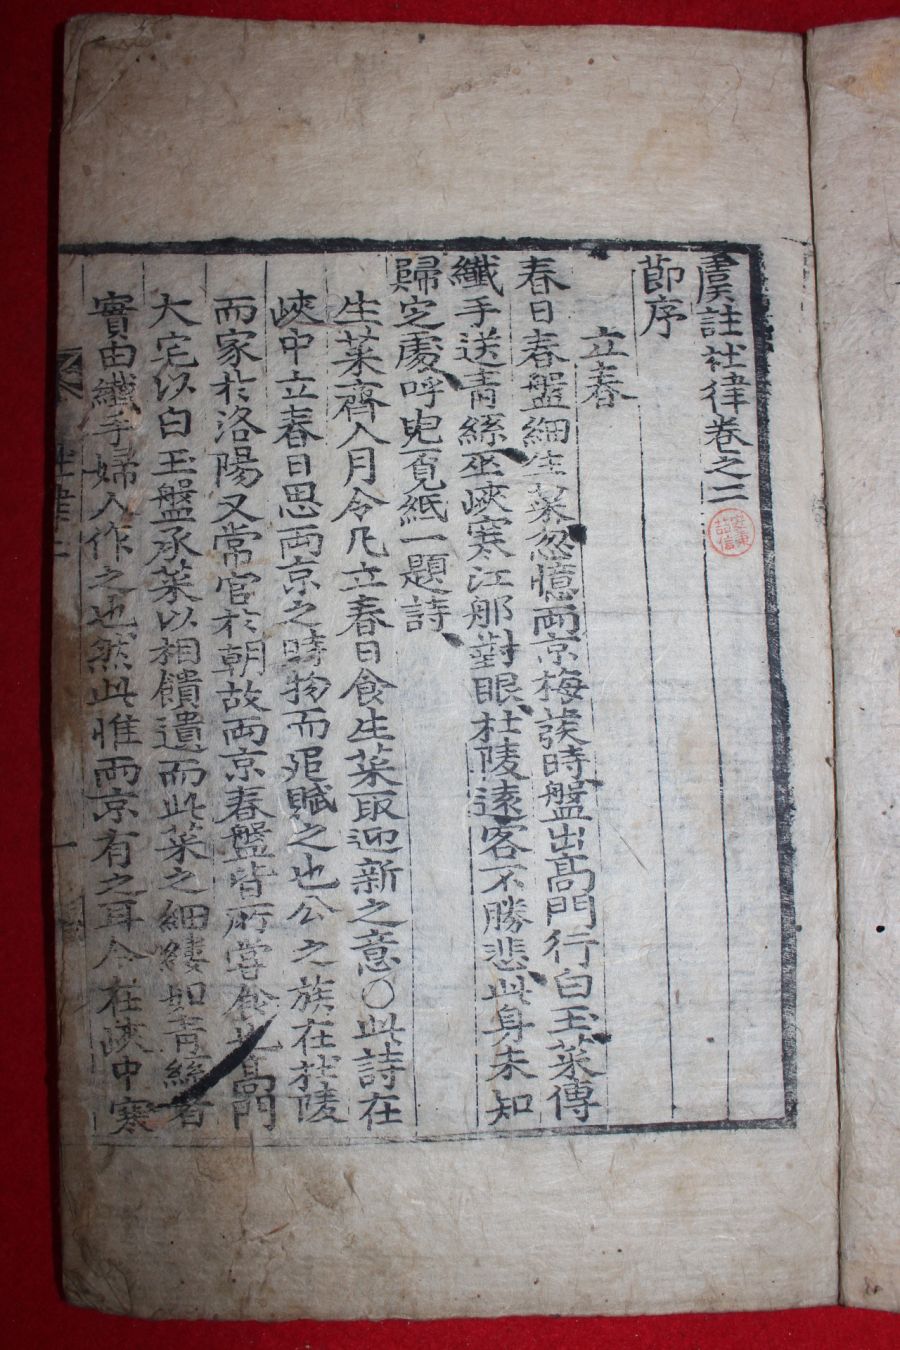 虞註杜律卷之二
節序
立春
春日春盤細生菜忽憶兩京梅發時盤出高門行白玉菜傳
纖手送靑絲巫峽寒江那對眼杜陵遠客不勝悲此身未知
歸定處呼兒覓紙一題詩
生菜齊人月令凡立春日食生菜取迎新之意○此詩在
峽中立春日思兩京之時物而追賦之也公之族在杜陵
而家於洛陽又常官於朝故兩京春盤皆所嘗食也高門
大宅以白玉盤承菜以相饋遺而此菜之細縷如靑絲者
實由纖手婦人作之也然此惟兩京有之耳今在峽中寒